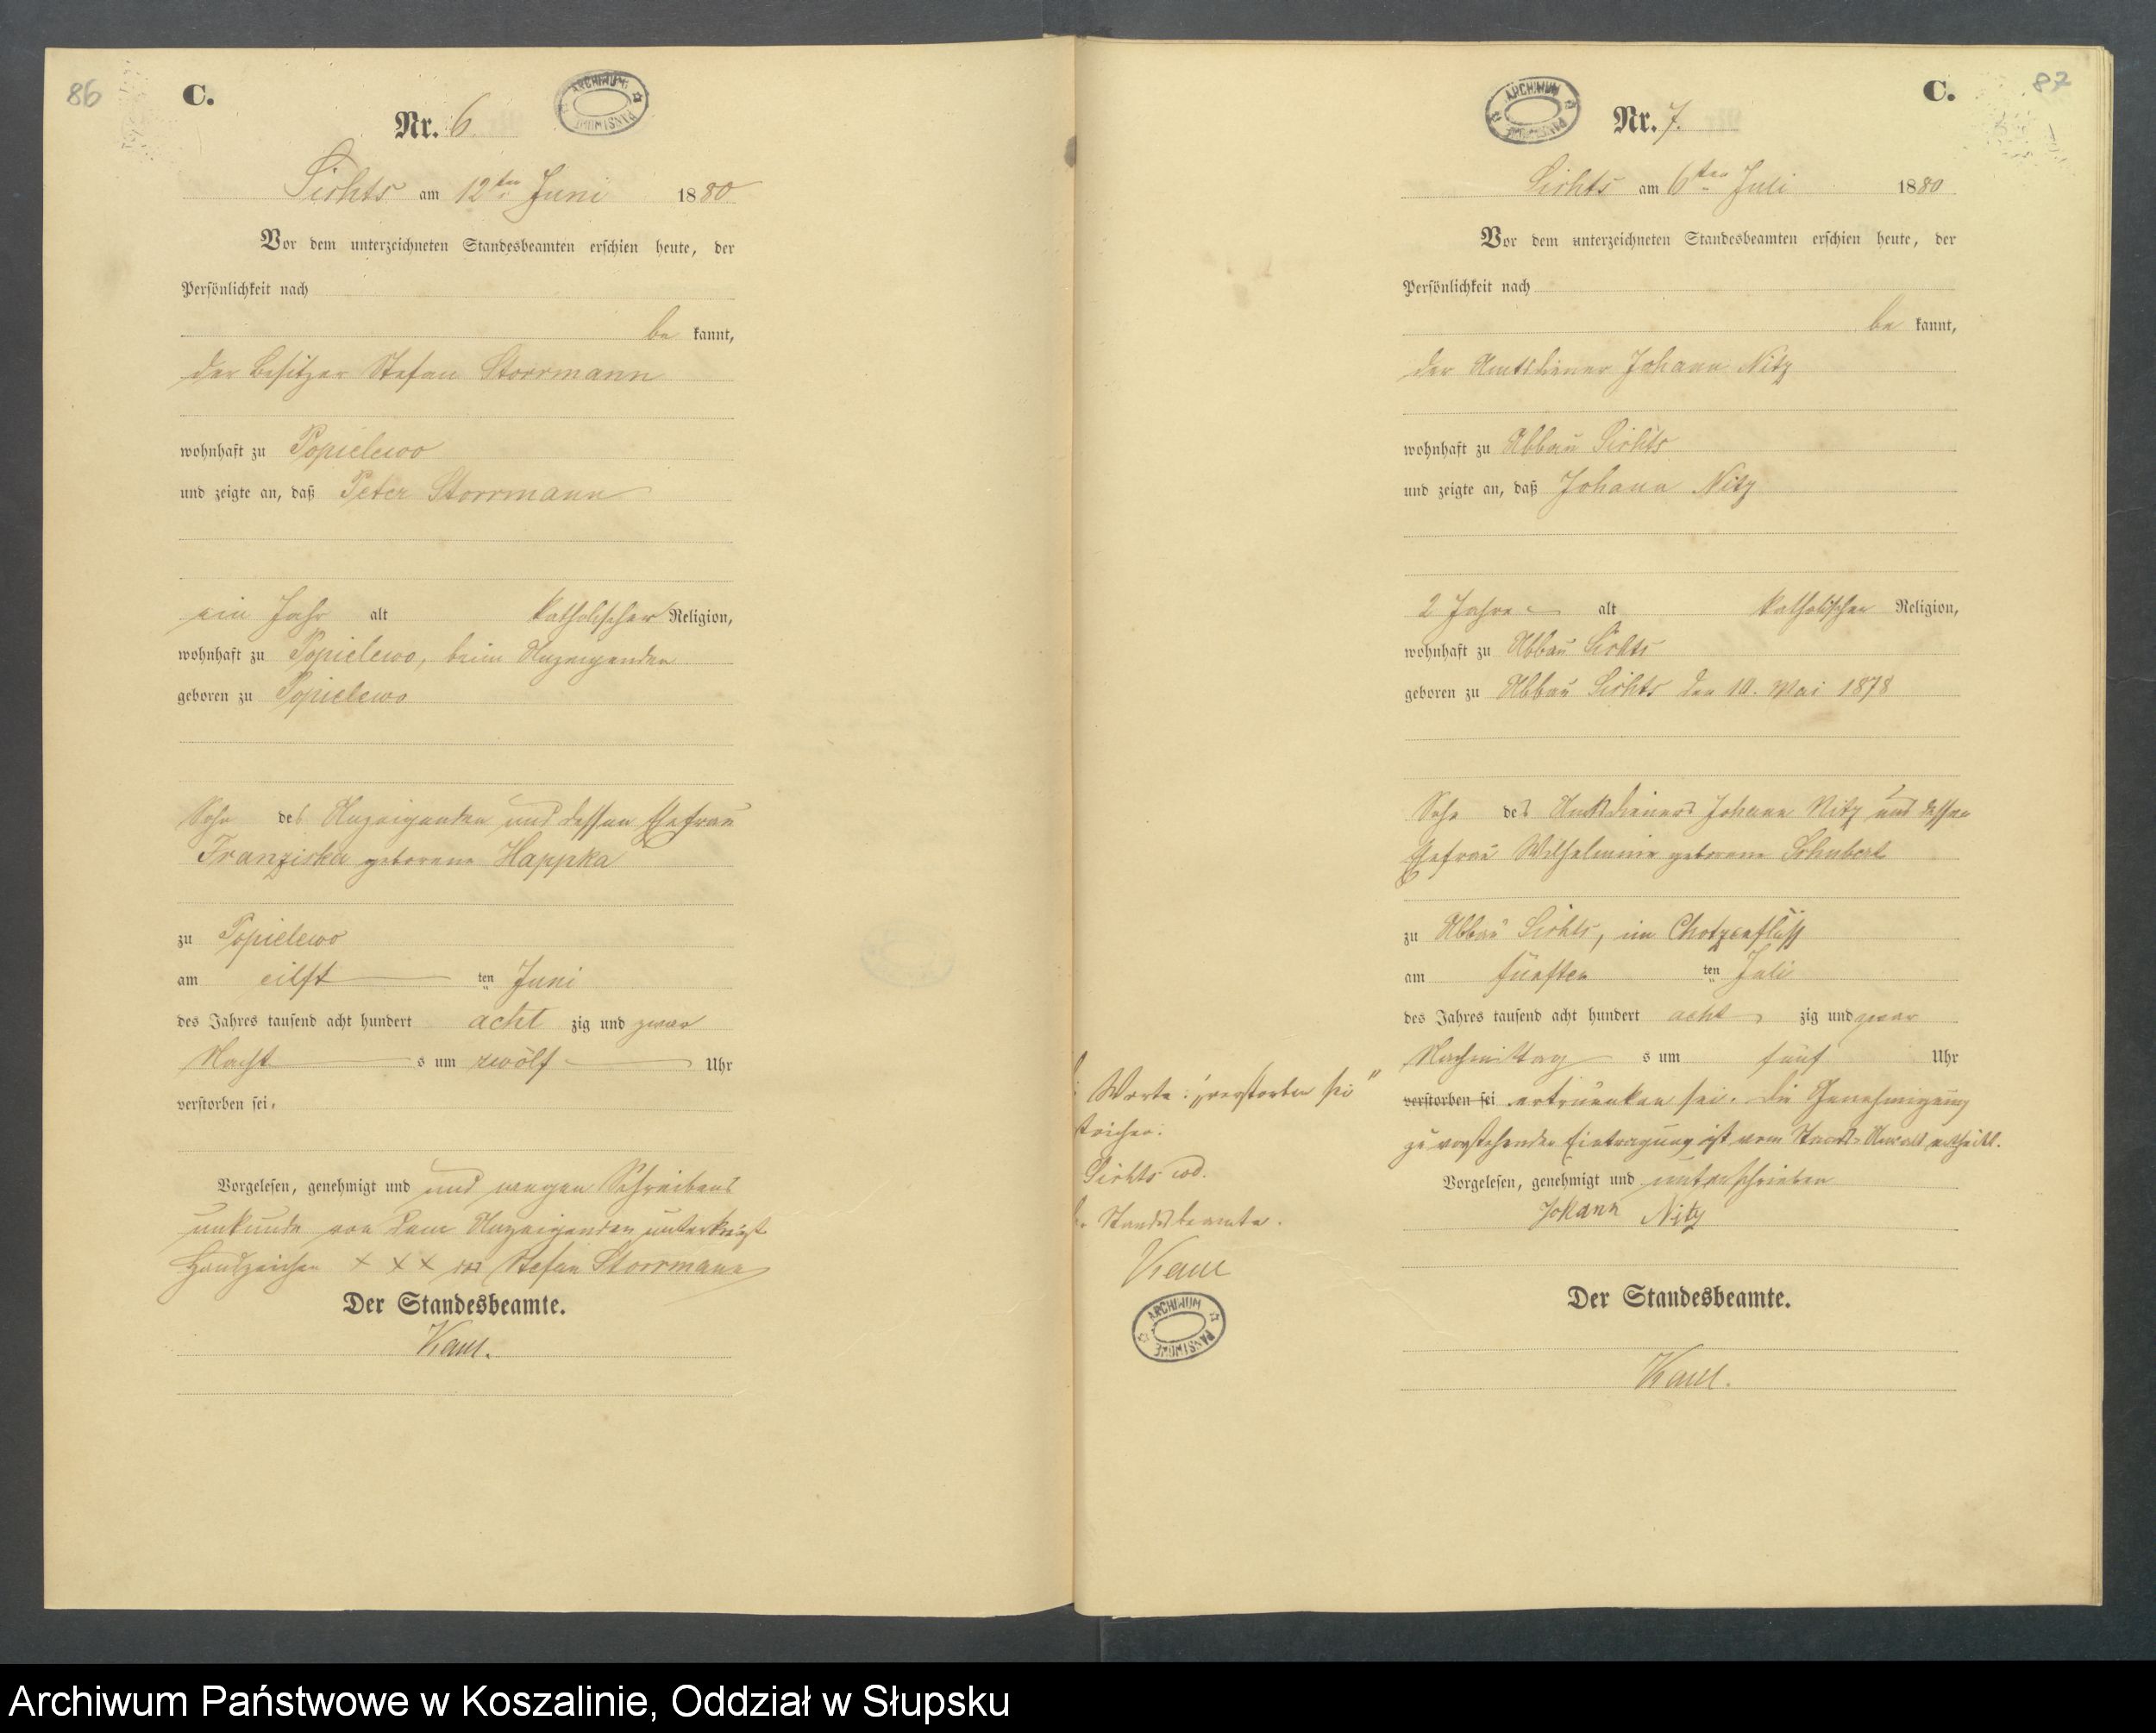 86
C.
ARCHIWUM PAŃSTWOWE
Nr. 6
Lichts am 12ten Juni 1880
Vor dem unterzeichneten Standesbeamten erschien heute, der
Persönlichkeit nach
be kannt,
der Besitzer Stefan Storrmann
wohnhaft zu Popielewo
und zeigte an, daß Peter Storrmann
ein Jahr alt katholischer Religion,
wohnhaft zu Popielewo, beim Anzeigenden
geboren zu Popielewo
Sohn des Anzeigenden und dessen Ehefrau
Franziska geborene Happka
zu Popielewo
am eilft ten Juni
des Jahres tausend acht hundert acht zig und zwar
Nacht s um zwölf Uhr
verstorben sei.
Vorgelesen, genehmigt und und wegen Schreibens
unkunde von dem Anzeigenden unterkreuzt
Handzeichen x x x des Stefan Storrmann
Der Standesbeamte.
Kaul.
87
C.
ARCHIWUM PAŃSTWOWE
Nr. 7.
Lichts am 6ten Juli 1880
Vor dem unterzeichneten Standesbeamten erschien heute, der
Persönlichkeit nach
be kannt,
der Amtsdiener Johann Nitz
wohnhaft zu Abbau Lichts
und zeigte an, daß Johann Nitz
2 Jahre alt katholischer Religion,
wohnhaft zu Abbau Lichts
geboren zu Abbau Lichts den 10. Mai 1878
Sohn des Amtsdieners Johann Nitz und dessen
Ehefrau Wilhelmine geborene Schubert
zu Abbau Lichts, im Chotzenfluß
am fünften ten Juli
des Jahres tausend acht hundert acht zig und zwar
Nachmittag s um fünf Uhr
verstorben sei ertrunken sei. Die Genehmigung
zu vorstehender Eintragung ist vom Staats-Anwalt ertheilt.
Vorgelesen, genehmigt und unterschrieben
Johann Nitz
Der Standesbeamte.
Kaul.
Worte: "verstorben sei"
Lichts wd.
Standesbeamte.
Kaul
ARCHIWUM PAŃSTWOWE
Archiwum Państwowe w Koszalinie, Oddział w Słupsku